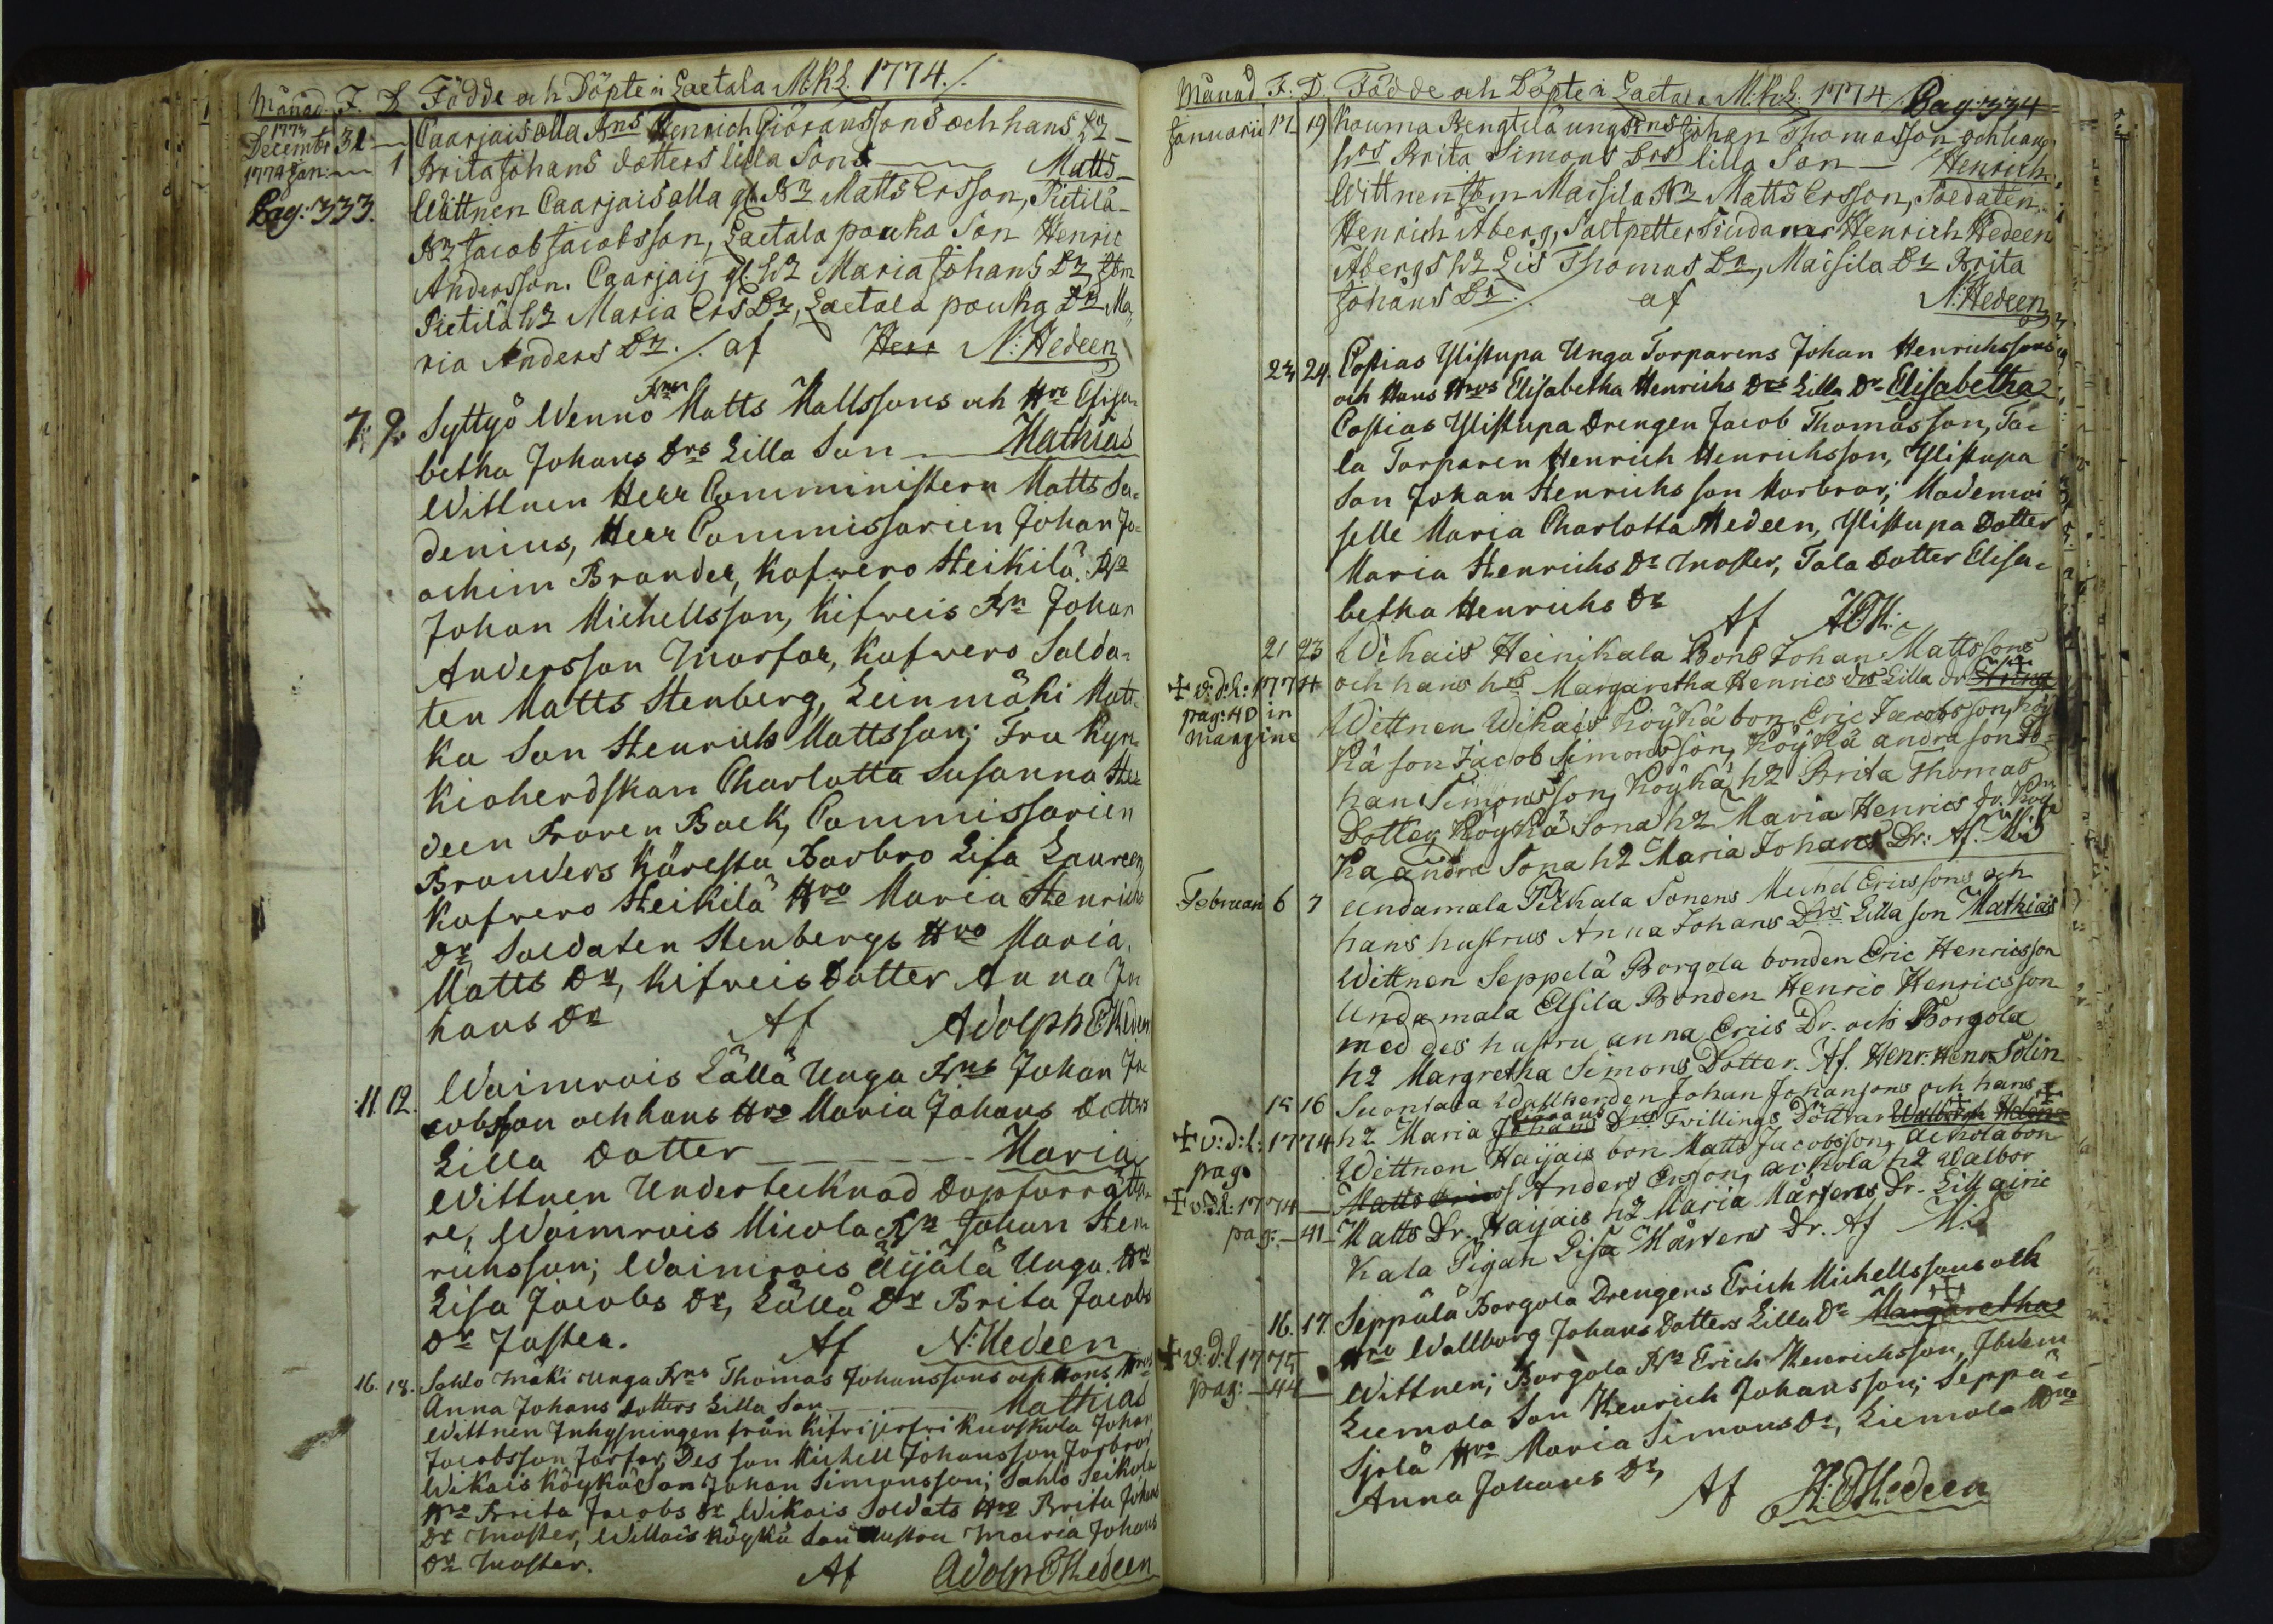 Månad. F. D. Födde och Döpte i Laetala M:K:L. 1774./.
1773
Decembr 31 — Caarjaisalla Bns Henrich Giöranssons och hans hz
1774 Jan: — 1 Brita Johans dotters lilla Son — Matts
Pag: 333. Wittnen Caarjaisalla gl. Bz Matts Ersson, Pietilä
Bz Jacob Jacobsson, Laetala pouka Son Henric
Andersson. Caarjais gl. hz Maria Johans Dz, Jtm
Pietilä hz Maria Ers Dz, Laetala pouka Dz Ma
ria Anders Dz ./. af Herr N: Hedeen
7. 9. Syttyö Wenno Bnn Matts Mattssons och Hro Elisa
betha Johans Drs Lilla Son — Mathias
Wittnen Herr Comministern Matts Sa
denius, Herr Commissarien Johan Jo
achim Brander, Kafwero Heikilä Bn
Johan Michellsson, Kifweis Bn Johan
Andersson Morfar, Kafwero Solda
ten Matts Stenberg, Leinmäki Matt
ka Son Henrich Mattsson; Fru Kyr
kioherdskan Charlotta Susanna He
deen Froren Baek, Commissarien
Branders Käresta Barbro Lisa Laureen
Kafwero Heikilä Hro Maria Henrichs
Dr Soldaten Stenbergs Hro Maria
Matts Dr, Kifweis Dotter Anna Jo
hans Dr Af Adolph O: Hedeen
11. 12. Waimrois Källä Unga Bns Johan Ja
cobsson och hans Hro Maria Johans Dotters
Lilla Dotter — Maria
Wittnen Undertecknad Dopförrätta
re, Waimrois Micola Bn Johan Hen
richsson; Waimrois Äijälä Unga Hro
Lisa Jacobs Dr, Källä Dr Brita Jacobs
Dr Faster. Af N: Hedeen
16. 18. Sahlo mäki unga Bns Thomas Johanssons och Hans Hros
Anna Johans dotters Lilla Son — Mathias
Wittnen Inhysningen från Kifrijerfvi Kuoskola Johan
Jacobsson Farfar, Des son Michell Johansson Farbror
Wikais Köykä Son Johan Simonsson; Sahlo Seikola
Hro Brita Jacobs Dr Wikais Soldats Hro Brita Johans
Dr Moster, Wikais Köykä Son Hustru Maria Johans
Dr Moster. Af Adolph O Hedeen
Månad F. D. Födde och Döpte i Laetala M:K:L: 1774 Pag: 334
Januarii 17 19 Kouma Bengtilä unga Bns Johan Thomasson och hans
hrs Brita Simons Drs lilla Son — Henrich
Wittnen Jtm Maisila Bz Matts Ersson, Soldaten
Henrich Åberg, Saltpetter Siudaren Henrich Hedeen
Åbergs hz Lis Thomas Dr, Maisila Dr Brita
Johans Dr. ./. af N: Hedeen
23 24. Copias Ylistupa Unga Torparens Johan Henrichssons
och Hans Hros Elisabetha Henrichs Drs Lilla Dr Elisabetha
Copias Ylistupa Drengen Jacob Thomasson, Ta
la Torparen Henrich Henrichsson, Ylistupa
Son Johan Henrichsson Morbror; Mademoi
selle Maria Charlotta Hedeen, Ylistupa Dotter
Maria Henrichs Dr Moster, Tala Dotter Elisa
betha Henrichs Dr Af A:O:H:
21 23 Wikais Heinikala Bons Johan Mattssons
† v: d: l: 1774 och hans hrs Margaretha Henrics drs Lilla dr Anna
pag: 40 in Wittnen Wikais Köykä bon Eric Jacobsson, Köy
margine kä son Jacob Simonsson, Köykä andra son Jo
han Simonsson, Köykä hz Brita Thomas
Dotter, Köykä Sona hz Maria Henrics dr. Köy
kä andra Sona hz Maria Johans Dr: Af. M:S
Februari 6 7 Undamala Pelkala Sonens Michel Ericssons och
hans hustrus Anna Johans Drs Lilla son Mathias
Wittnen Seppelä Borgola bonden Eric Henricsson
Undamala Elsila Bonden Henric Henricsson
med des hustru anna Erics Dr. och Borgola
hz Margretha Simons Dotter. Af. Henr: Henr: Polin
15 16 Suontaca Wallherden Johan Johansons och hans
† v: d: l: 1774 hz Maria Johans Drs Twillings Döttrar Walborg Helena
pag: Wittnen Haijais bon Matts Jacobsson, ackola bon
† v: d: l: 1774 — Matts Ericss Anders Ersson, ackola hz Walbor
pag: 41 — Matts Dr. Haijais hz Maria Mårtens Dr. Lill airic
kala Pigan Lisa Mårtens Dr. Af M:S
16. 17. Seppälä Borgola Drengens Erich Michellssons och
Hro Wallborg Johans Dotters Lilla Dr Margaretha
† v: d: l 1775 Wittnen; Borgola Bn Erich Henrichsson, Ibidem
pag: — 44 — Liemola Son Henrich Johansson; Seppä
Sjolä Hro Maria Simons Dr, Liemola Hro
Anna Johans Dr, Af A: O Hedeen